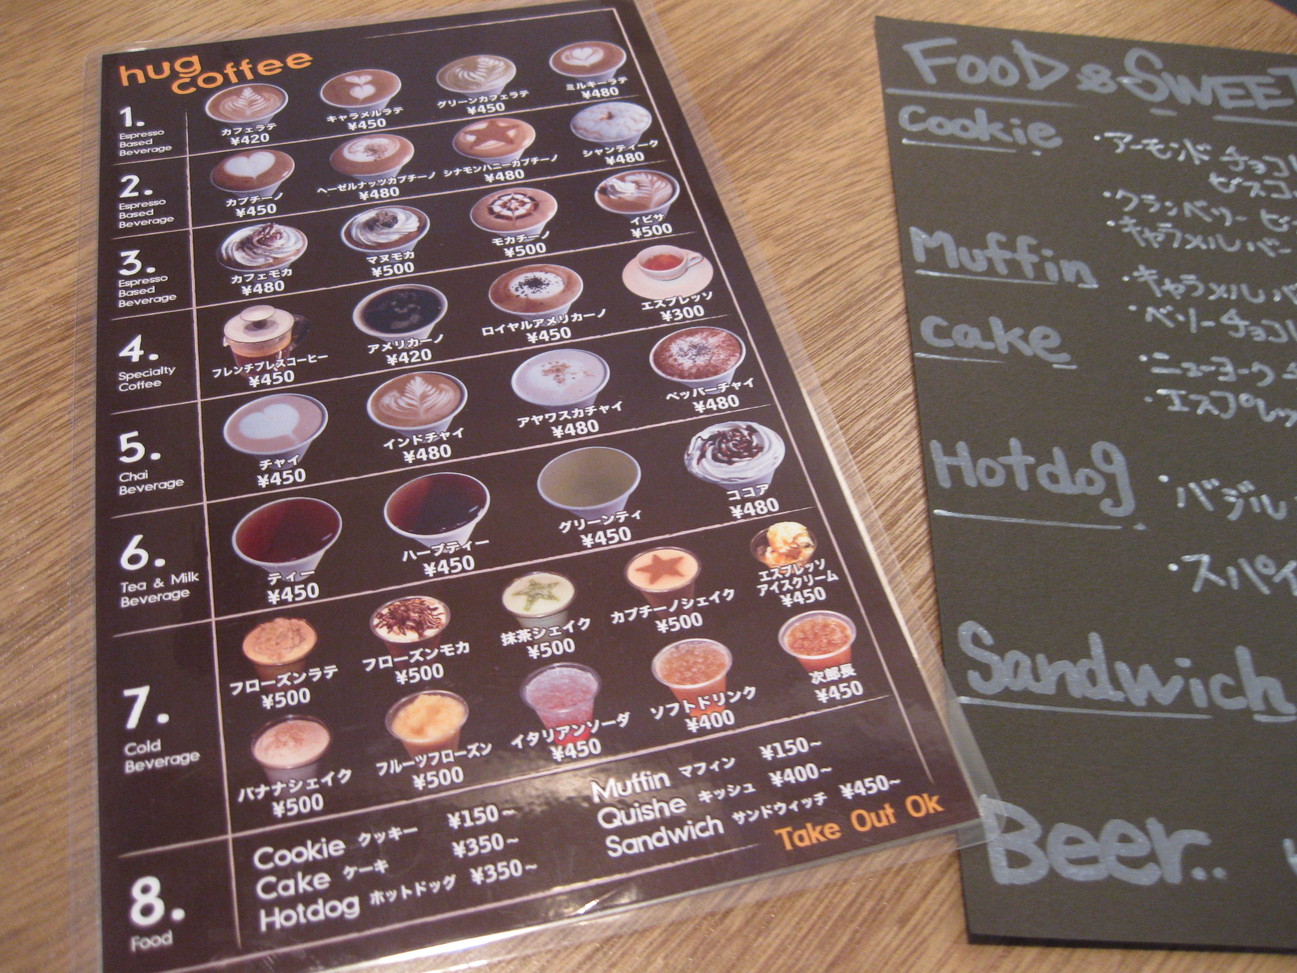 hug
coffee
1.
Espresso
Based
Beverage
カフェラテ
¥420
キャラメルラテ
¥450
グリーンカフェラテ
¥450
ミルキーラテ
¥480
2.
Espresso
Based
Beverage
カプチーノ
¥450
ヘーゼルナッツカプチーノ
¥480
シナモンハニーカプチーノ
¥480
シャンティーク
¥480
3.
Espresso
Based
Beverage
カフェモカ
¥480
マヌモカ
¥500
モカチーノ
¥500
イビサ
¥500
4.
Specialty
Coffee
フレンチプレスコーヒー
¥450
アメリカーノ
¥420
ロイヤルアメリカーノ
¥450
エスプレッソ
¥300
5.
Chai
Beverage
チャイ
¥450
インドチャイ
¥480
アヤワスカチャイ
¥480
ペッパーチャイ
¥480
6.
Tea & Milk
Beverage
ティー
¥450
ハーブティー
¥450
グリーンティ
¥450
ココア
¥480
7.
Cold
Beverage
フローズンラテ
¥500
フローズンモカ
¥500
抹茶シェイク
¥500
カプチーノシェイク
¥500
エスプレッソ
アイスクリーム
¥450
バナナシェイク
¥500
フルーツフローズン
¥500
イタリアンソーダ
¥450
ソフトドリンク
¥400
次郎長
¥450
8.
Food
Cookie クッキー ¥150~
Cake ケーキ ¥350~
Hotdog ホットドッグ ¥350~
Muffin マフィン ¥150~
Quishe キッシュ ¥400~
Sandwich サンドウィッチ ¥450~
Take Out Ok
FOOD & SWEET
Cookie
・アーモンドチョコ
ビスコ
・クランベリー ビ
・キャラメルバー
Muffin
・キャラメルバ
・ベリーチョコ
cake
・ニューヨーク
・エスプレッ
Hotdog
・バジル
・スパイ
Sandwich
Beer..